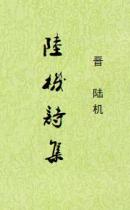 晋 陆机
陸機詩集